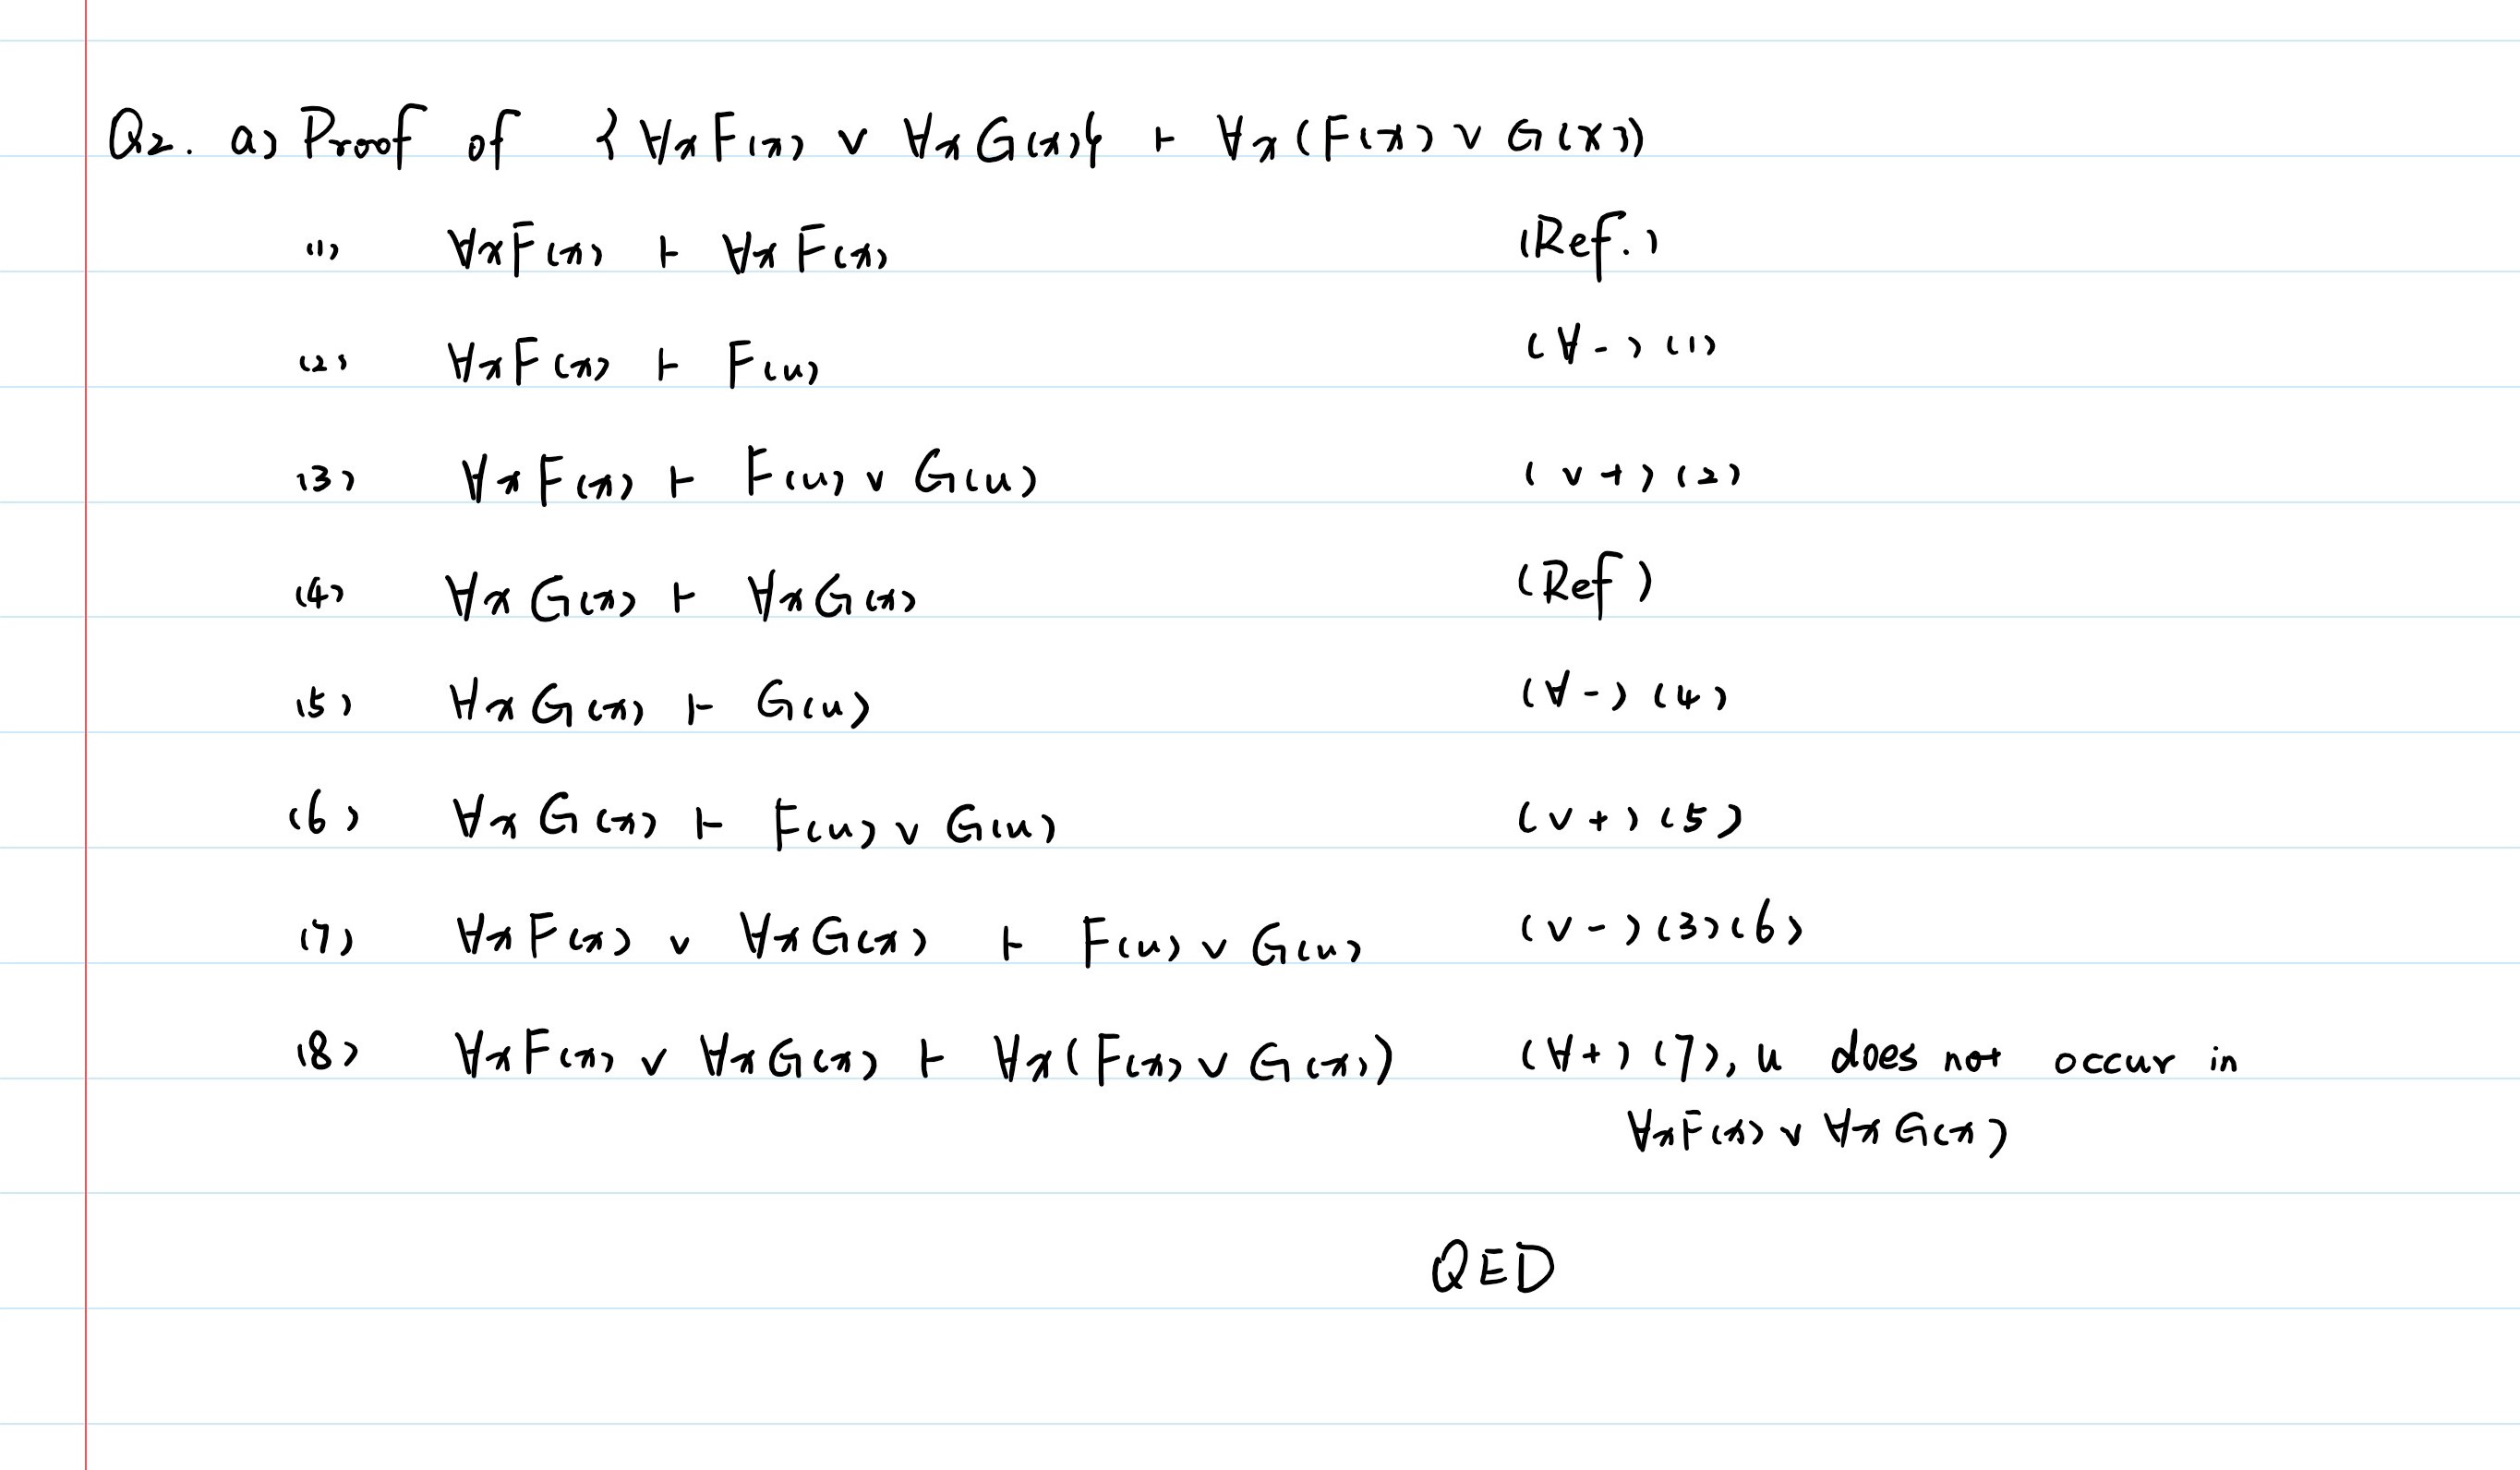 Q2. a) Proof of {∀xF(x) ∨ ∀xG(x)} ⊢ ∀x(F(x) ∨ G(x))
(1) ∀xF(x) ⊢ ∀xF(x) (Ref.)
(2) ∀xF(x) ⊢ F(u) (∀-)(1)
(3) ∀xF(x) ⊢ F(u) ∨ G(u) (∨+)(2)
(4) ∀xG(x) ⊢ ∀xG(x) (Ref)
(5) ∀xG(x) ⊢ G(u) (∀-)(4)
(6) ∀xG(x) ⊢ F(u) ∨ G(u) (∨+)(5)
(7) ∀xF(x) ∨ ∀xG(x) ⊢ F(u) ∨ G(u) (∨-)(3)(6)
(8) ∀xF(x) ∨ ∀xG(x) ⊢ ∀x(F(x) ∨ G(x)) (∀+)(7), u does not occur in
∀xF(x) ∨ ∀xG(x)
QED